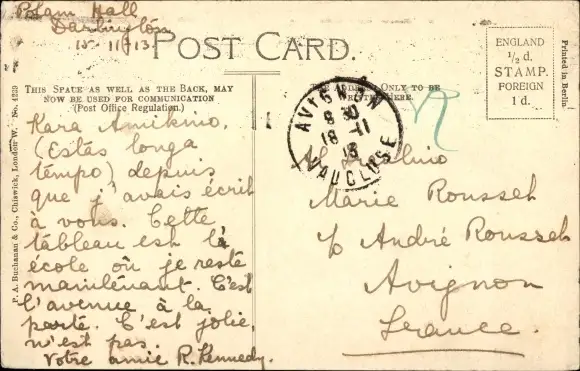 Polam Hall
Darlington
15-11-13
POST CARD.
THIS SPACE AS WELL AS THE BACK, MAY
NOW BE USED FOR COMMUNICATION
(Post Office Regulation.)
ADDRESS ONLY TO BE
HERE.
ENGLAND
½ d.
STAMP.
FOREIGN
1 d.
Printed in Berlin
P. A. Buchanan & Co., Chiswick, London W. No. 4229
AVIGNON
8 30
18-11
13
VAUCLUSE
Kara Amikino,
(Estas longa
tempo) depuis
que j'avais écrit
à vous. Cette
tableau est là
école où je reste
maintenant. C'est
l'avenue à la
porte. C'est jolie,
n'est pas.
Votre amie R. Kennedy.
Al Fraŭlino
Marie Rousset
c/o André Rousset
Avignon
France.